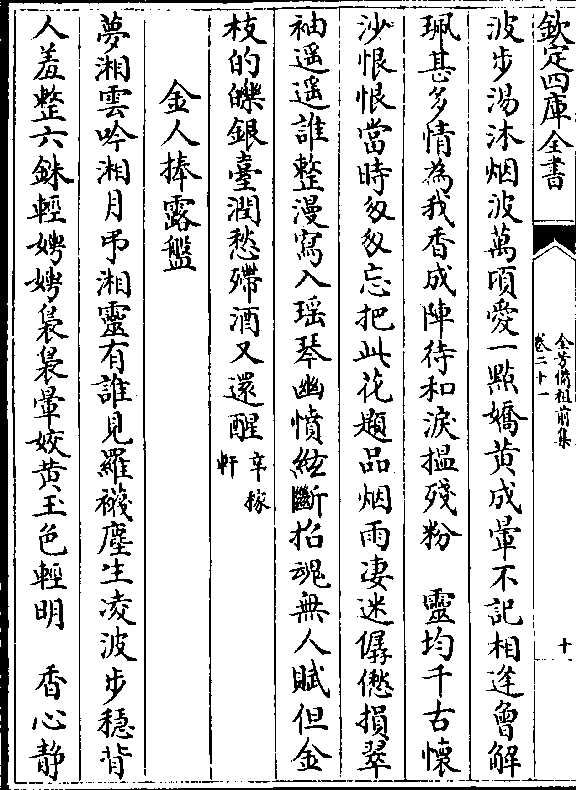 欽定四庫全書
全芳備祖前集
卷二十一
十
波步湯沐烟波萬頃愛一點嬌黄成暈不記相逢曾解
珮甚多情為我香成陣待和淚搵殘粉　靈均千古懷
沙恨恨當時匆匆忘把此花題品烟雨凄迷僝僽損翠
袖遥遥誰整漫寫入瑶琴幽憤絃斷招魂無人賦但金
杯的皪銀臺潤愁殢酒又還醒辛稼軒
金人捧露盤
夢湘雲吟湘月弔湘靈有誰見羅襪塵生凌波步穩背
人羞整六銖輕娉娉裊裊暈姣黄玉色輕明　香心靜